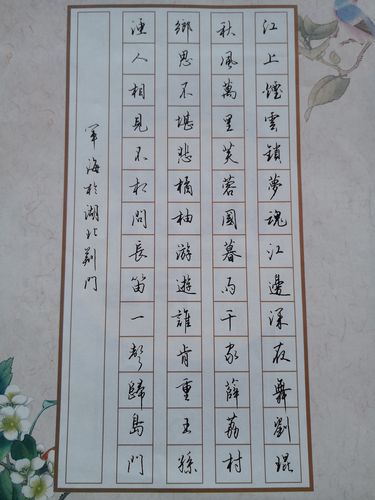 江上煙雲鎖夢魂江邊深夜舞劉琨
秋風萬里芙蓉國暮雨千家薜荔村
鄉思不堪悲橘柚旅遊誰肯重王孫
漁人相見不相問長笛一聲歸島門
軍海於湖北荊門